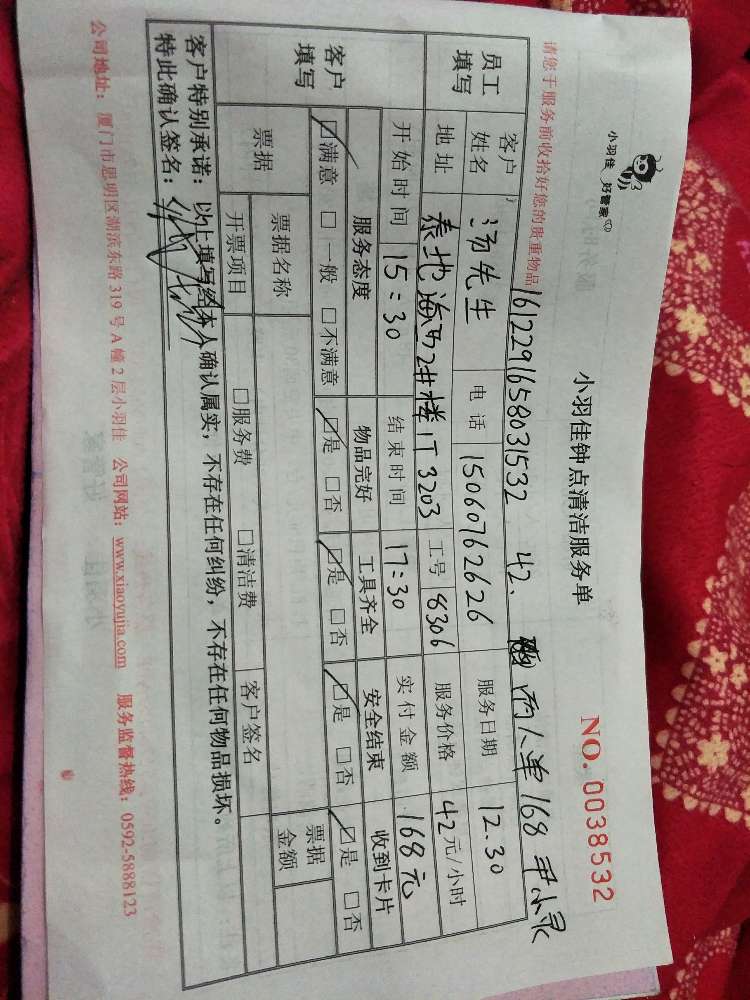 小羽佳 好管家
小羽佳钟点清洁服务单
NO. 0038532
请您于服务前收拾好您的贵重物品
1612291658031532 42、两人单168 尹小灵
员工填写 客户姓名 汤先生 电话 15060762626 服务日期 12.30
地址 泰地海西2#楼1T3203 工号 8306 服务价格 42元/小时
开始时间 15:30 结束时间 17:30 实付金额 168元
客户填写 服务态度 物品完好 工具齐全 安全结束 收到卡片
☑满意 □一般 □不满意 ☑是 □否 ☑是 □否 ☑是 □否 ☑是 □否
票据 票据名称 票据金额
开票项目 □服务费 □清洁费 客户签名
客户特别承诺：以上填写经本人确认属实，不存在任何纠纷，不存在任何物品损坏。
特此确认签名：
公司地址：厦门市思明区湖滨东路319号A幢2层小羽佳 公司网站：www.xiaoyujia.com 服务监督热线：0592-5888123